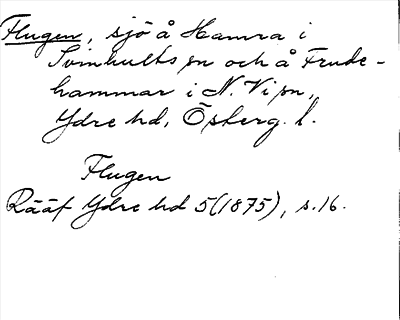 Flugen, sjö å Hamra i
Svinhults sn och å Frude-
hammar i N. Vi sn,
Ydre hd, Österg. l.
Flugen
Rääf Ydre hd 5(1875), s.16.